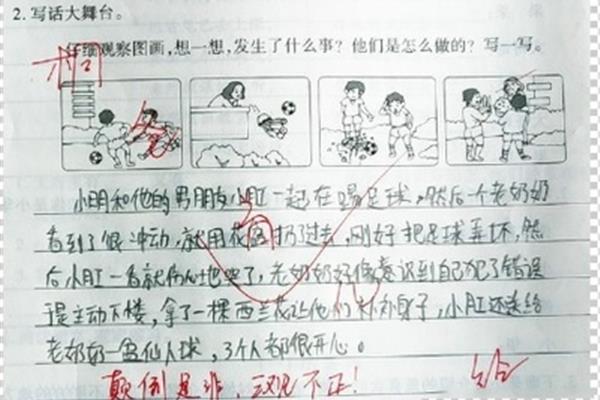 2. 写话大舞台。
仔细观察图画，想一想，发生了什么事？他们是怎么做的？写一写。
小明和他的男朋友小肛一起在踢足球，然后一个老奶奶
看到了很冲动，就用花盆扔了过去，刚好把足球弄坏，然
后小肛一看就伤心地哭了，老奶奶好像意识到自己犯了错误
主动下楼，拿了一棵西兰花让他们补补身子，小肛还送给
老奶奶一盆仙人球，3个人都很开心。
颠倒是非，三观不正！